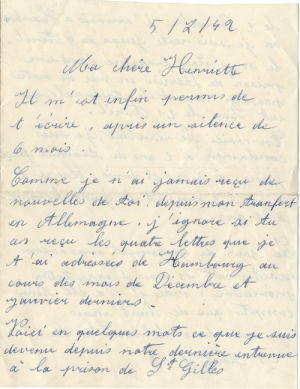 5/2/42
Ma chère Henriette
Il m'est enfin permis de
t'écrire, après un silence de
6 mois.
Comme je n'ai jamais reçu de
nouvelles de toi, depuis mon tranfert
en Allemagne, j'ignore si tu
as reçu les quatre lettres que je
t'ai adressées de Hambourg au
cours des mois de Décembre et
janvier derniers.
Voici en quelques mots ce que je suis
devenu depuis notre dernière entrevue
à la prison de St Gilles